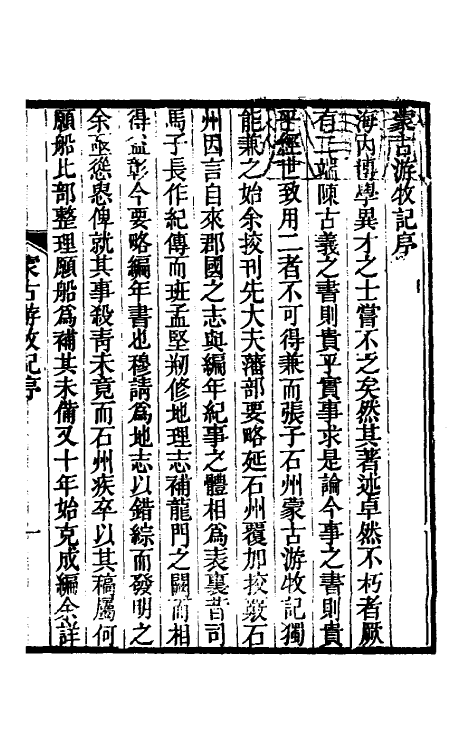 蒙古游牧記序
海內博學異才之士嘗不乏矣然其著述卓然不朽者厥
有二端陳古義之書則貴乎實事求是論今事之書則貴
乎經世致用二者不可得兼而張子石州蒙古游牧記獨
能兼之始余挍刊先大夫藩部要略延石州覆加挍覈石
州因言自來郡國之志與編年紀事之體相爲表裏昔司
馬子長作紀傳而班孟堅剏修地理志補龍門之闕而相
得益彰今要略編年書也穆請爲地志以錯綜而發明之
余亟慫恿俾就其事殺青未竟而石州疾卒以其稿屬何
願船比部整理願船爲補其未備又十年始克成編余詳
蒙古游牧記序
一